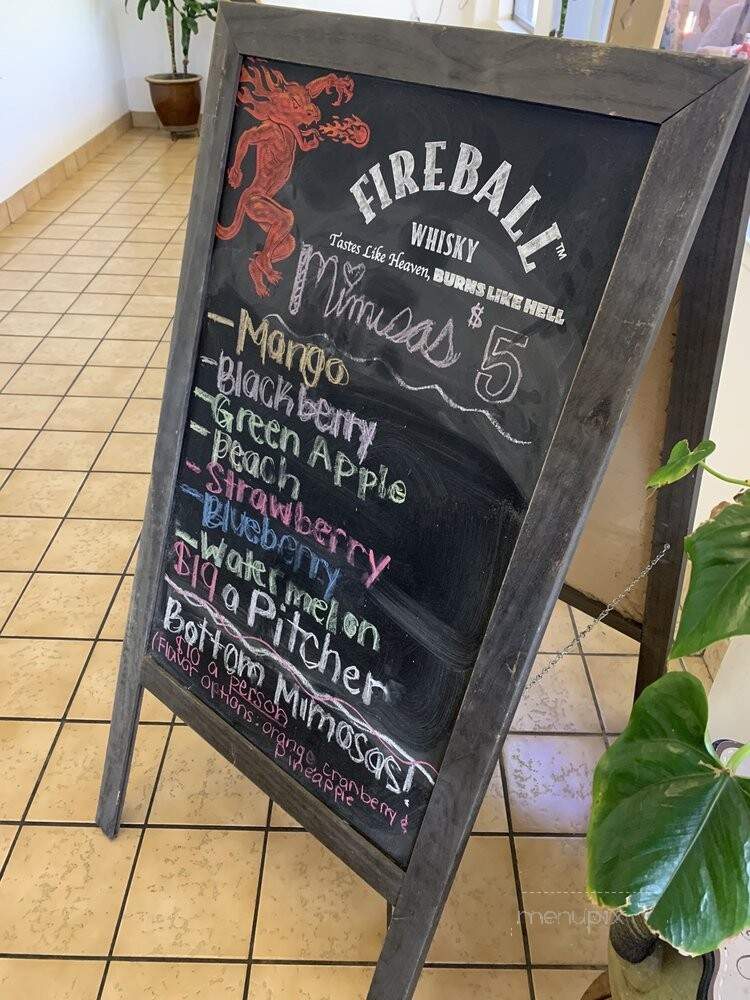 FIREBALL™
WHISKY
Tastes Like Heaven, BURNS LIKE HELL
Mimosas $5
- Mango
- Blackberry
- Green Apple
- Peach
- Strawberry
- Blueberry
- Watermelon
$19 a Pitcher
Bottom Mimosas!
$10 a Person
(Flavor options: orange, cranberry &
pineapple
menupix